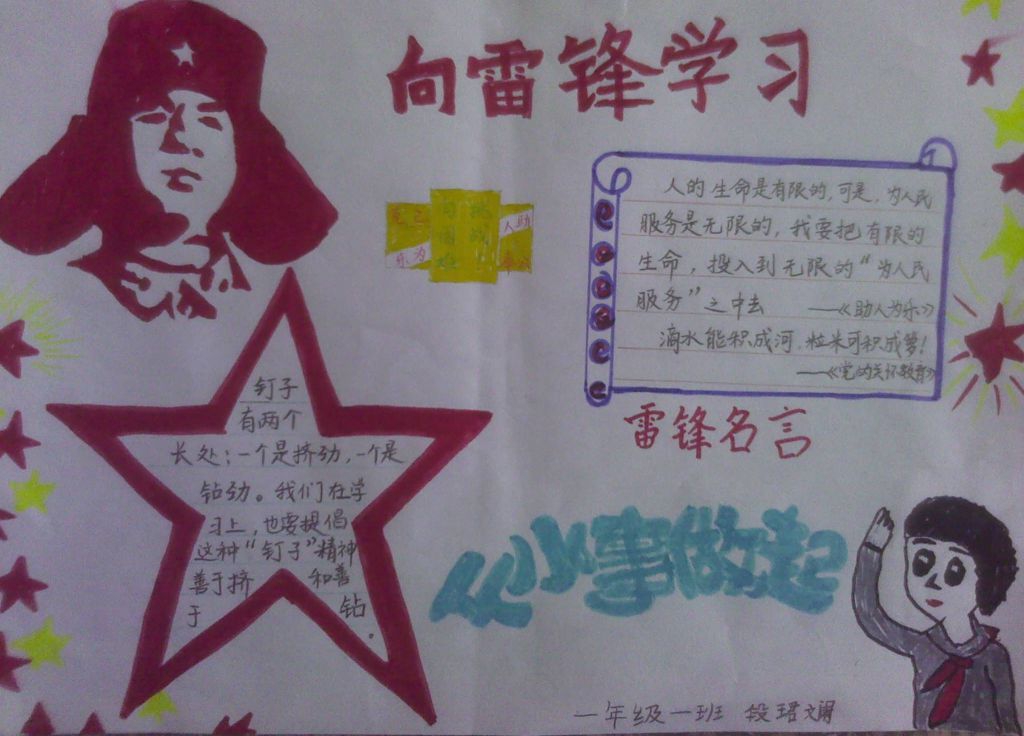 向雷锋学习
人的生命是有限的,可是,为人民
服务是无限的,我要把有限的
生命,投入到无限的“为人民
服务”之中去 ——《助人为乐》
滴水能积成河,粒米可积成箩!
——《党的关怀教育》
雷锋名言
钉子
有两个
长处:一个是挤劲,一个是
钻劲。我们在学
习上,也要提倡
这种“钉子”精神
善于挤 和善
于 钻。
从小事做起
一年级一班 段珺